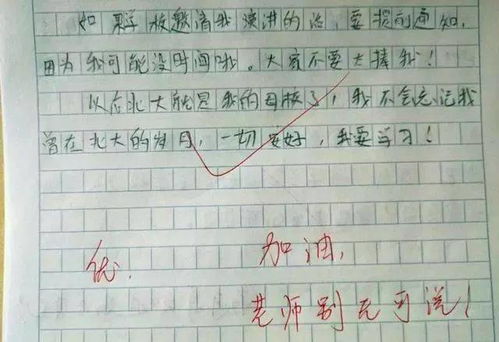 如果学校邀请我演讲的话，要提前通知，
因为我可能没时间哦。大家不要太捧我！
以后北大就是我的母校了，我不会忘记我
曾在北大的岁月，一切安好，我要学习！
优．
加油，
老师别无可说！